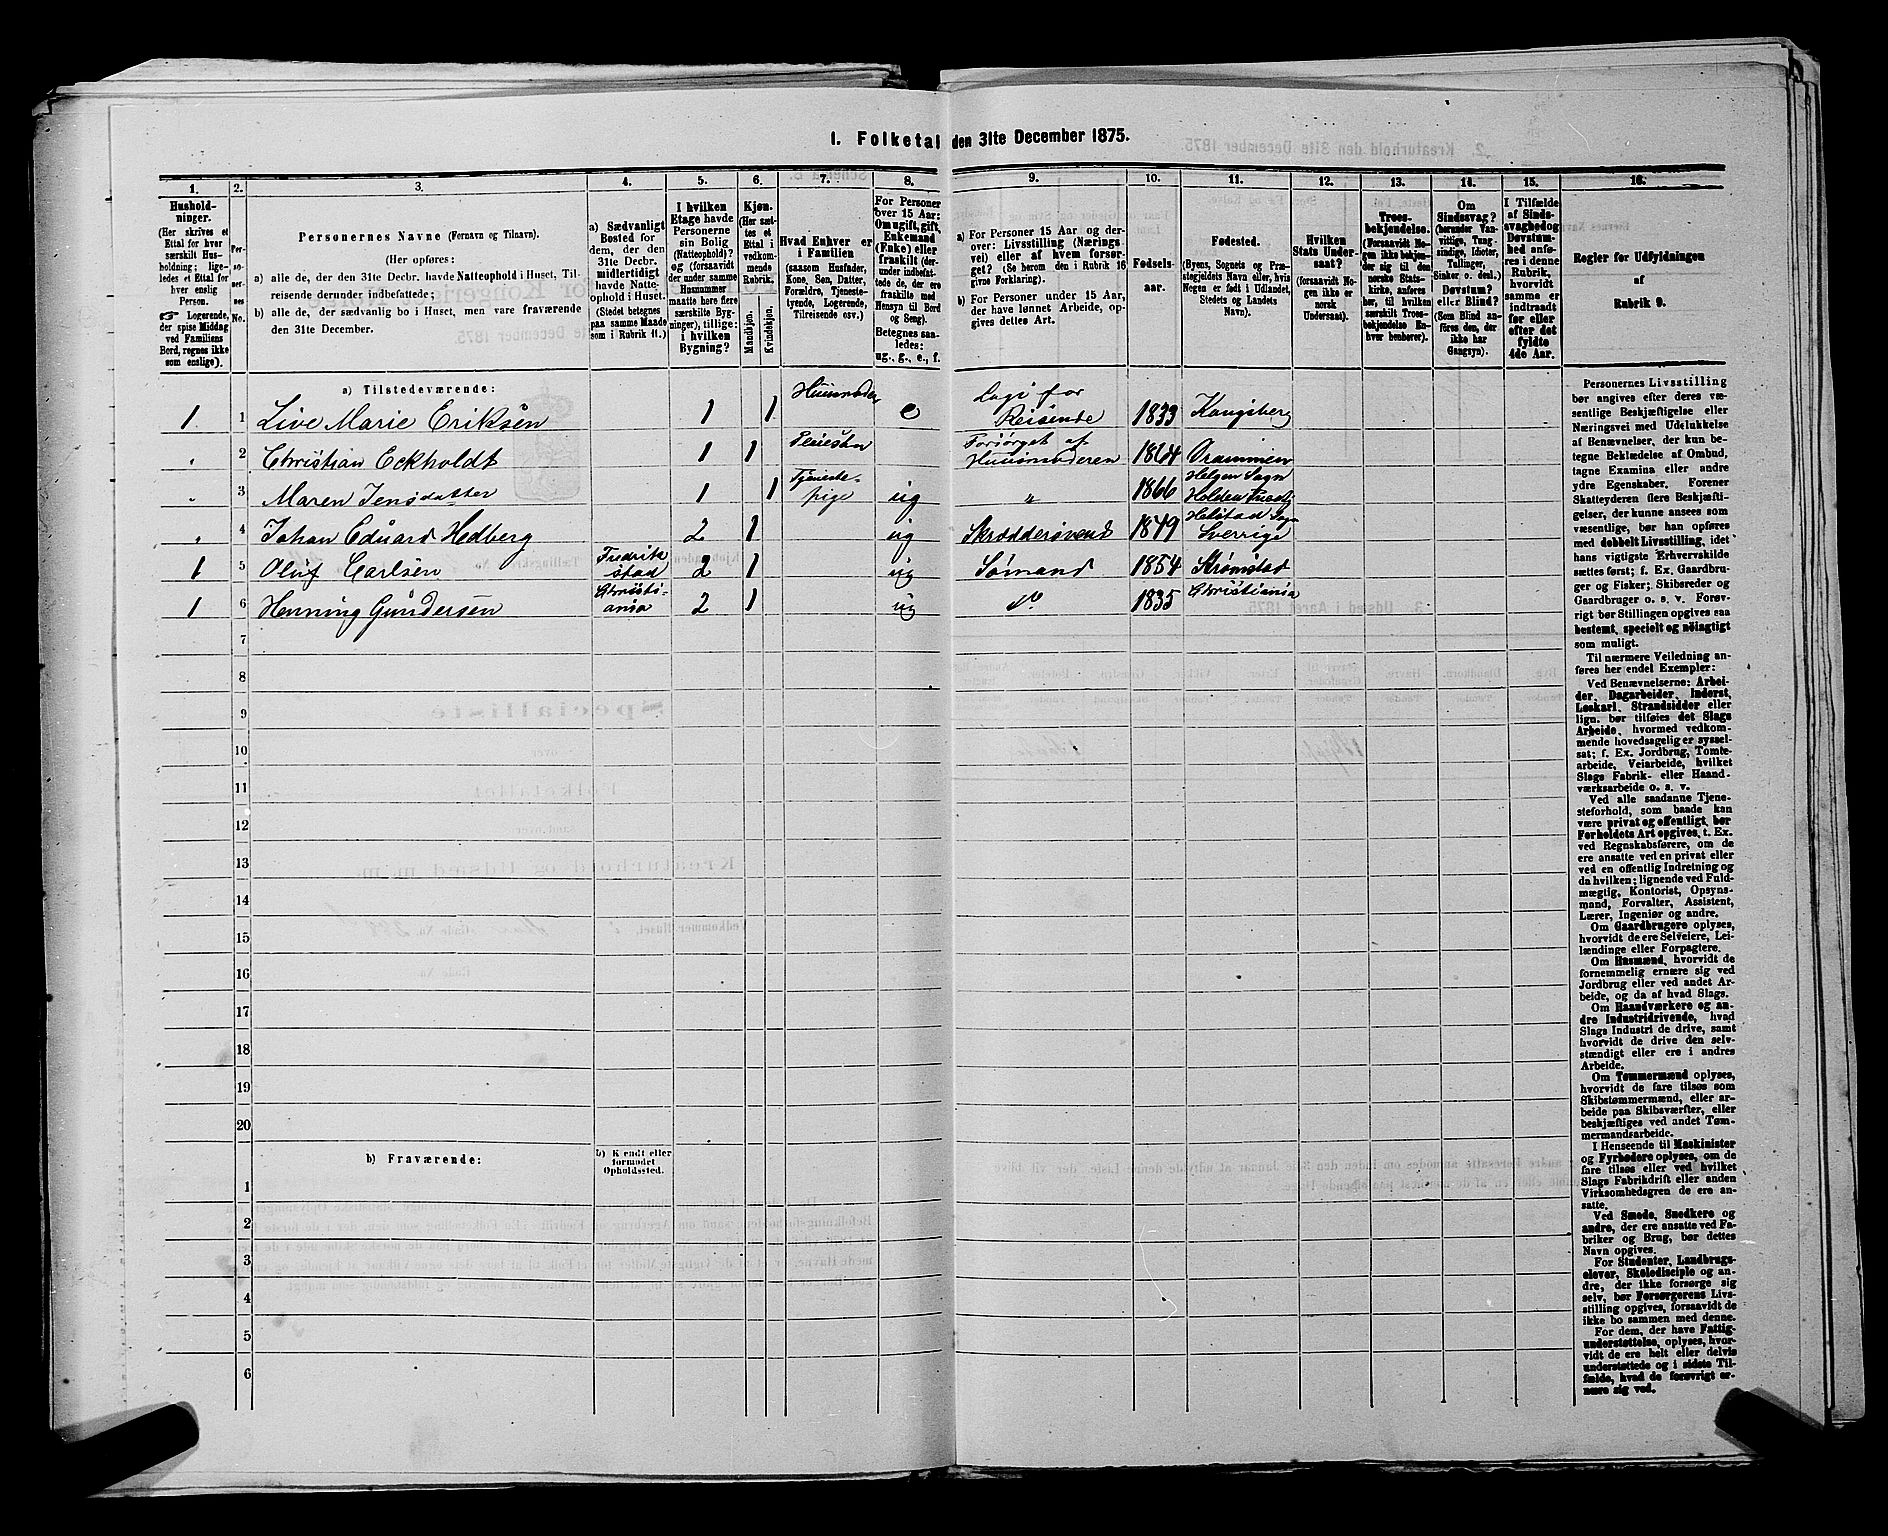 I. Folketal den 31te December 1875.
1. 2. 3. 4. 5. 6. 7. 8. 9. 10. 11. 12. 13. 14. 15. 16.
Hushold-
ninger.
(Her skrives et
Ettal for hver
særskilt Hus-
holdning; lige-
ledes et Ettal
for hver enslig
Person.
Logerende,
der spise Middag
ved Familiens
Bord, regnes ikke
som enslige).
Per-
so-
ner-
nes
No.
Personernes Navne (Fornavn og Tilnavn).
(Her opføres:
a) alle de, der den 31te Decbr. havde Natteophold i Huset, Til-
reisende derunder indbefattede;
b) alle de, der sædvanlig bo i Huset, men vare fraværende
den 31te December.
a) Sædvanligt
Bosted for
dem, der den
31te Decbr.
midlertidigt
havde Natte-
ophold i Huset.
(Stedet betegnes
paa samme Maade
som i Rubrik 11.)
I hvilken
Etage havde
Personerne
sin Bolig
(Natteophold)?
og (forsaavidt
der under samme
Husnummer
maatte høre flere
særskilte Byg-
ninger), tillige:
i hvilken
Bygning?
Kjøn.
(Her sæt-
tes et
Ettal i
vedkom-
mende
Rubrik.
Mandkjøn.
Kvindekjøn.
Hvad Enhver er
i Familien
(saasom Husfader,
Kone, Søn, Datter,
Forældre, Tjeneste-
tyende, Logerende,
Tilreisende osv.)
For Personer
over 15 Aar:
Om ugift, gift,
Enkemand
(Enke) eller
fraskilt (der-
under indbefat-
tede de, der ere
fraskilte med
Hensyn til Bord
og Seng).
Betegnes saa-
ledes:
ug., g., e., f.
a) For Personer 15 Aar og der-
over: Livsstilling (Nærings-
vei) eller af hvem forsør-
get? (Se herom den i Rubrik 16
givne Forklaring).
b) For Personer under 15 Aar,
der have lønnet Arbeide, op-
gives dettes Art.
Fødsels-
aar.
Fødested.
(Byens, Sognets og Præ-
stegjeldets Navn eller, hvis
Nogen er født i Udlandet,
Stedets og Landets
Navn).
Hvilken
Stats Under-
saat?
(forsaavidt No-
gen ikke er
norsk
Undersaat).
Troes-
bekjendelse.
(Forsaavidt No-
gen ikke bekjen-
der sig til den
norske Stats-
kirke, anføres
her, til hvilken
særskilt Troes-
bekjendelse En-
hver henhører).
Om
Sindssvag?
(herunder Van-
vittige, Tung-
sindige, Idioter,
Tullinger,
Sinker o. desl.)
Døvstum?
eller Blind?
(Som Blind an-
føres den, der
ikke har
Gangsyn).
I Tilfælde
af Sinds-
svaghed og
Døvstum-
hed anfø-
res i denne
Rubrik,
hvorvidt
samme er
indtraadt
før eller
efter det
fyldte
4de Aar.
Regler for Udfyldningen
af
Rubrik 9.
a) Tilstedeværende:
1 1 Live Marie Eriksen 1 1 Huusmoder e Logi for Reisende 1833 Kongsberg
" 2 Christian Eckholdt 1 1 Pleiesøn Forsørget af Huusmoderen 1864 Drammen
" 3 Maren Jensdatter 1 1 Tjeneste-pige ug " 1866 Helgen Sogn Holden
" 4 Johan Eduard Hedberg 2 1 ug Skræddersvend 1849 Sverrige
1 5 Oluf Carlsen Fredrikstad 2 1 ug Sømand 1854 Strømstad
1 6 Henning Gundersen Christiania 2 1 ug do 1835 Christiania
7
8
9
10
11
12
13
14
15
16
17
18
19
20
b) Fraværende:
b) Kjendt eller
formodet
Opholdssted.
1
2
3
4
5
6
Personernes Livsstilling
bør angives efter deres væ-
sentlige Beskjæftigelse eller
Næringsvei med Udelukkelse
af Benævnelser, der kun be-
tegne Beklædelse af Ombud,
tagne Examina eller andre
ydre Egenskaber. Forener
Skatteyderen flere Beskjæfti-
gelser, der kunne ansees som
væsentlige, bør han opføres
med dobbelt Livsstilling, idet
hans vigtigste Erhvervskilde
sættes først; f. Ex. Gaardbru-
ger og Fisker; Skibsreder og
Gaardbruger o. s. v. Forøv-
rigt bør Stillingen opgives saa
bestemt, specielt og nøiagtigt
som muligt.
Til nærmere Veiledning an-
føres her endel Exempler:
Ved Benævnelserne: Arbei-
der, Dagarbeider, Inderst,
Løskarl, Strandsidder eller
lign. bør tilføies det Slags
Arbeide, hvormed vedkom-
mende hovedsagelig er syssel-
sat; f. Ex. Jordbrug, Tomte-
arbeide, Veiarbeide, hvilket
Slags Fabrik- eller Haand-
værksarbeide o. s. v.
Ved alle saadanne Tjene-
steforhold, som baade kan
være privat og offentligt, bør
Forholdets Art opgives, t. Ex.
ved Regnskabsførere, om de
ere ansatte ved en privat eller
ved en offentlig Indretning og
da hvilken; lignende ved Fuld-
mægtig, Kontorist, Opsyns-
mand, Forvalter, Assistent,
Lærer, Ingeniør og andre.
Om Gaardbrugere oplyses,
hvorvidt de ere Selveiere, Lei-
lændinge eller Forpagtere.
Om Husmænd, hvorvidt de
fornemmelig ernære sig ved
Jordbrug eller ved andet Ar-
beide, og da af hvad Slags.
Om Haandværkere og an-
dre Industridrivende, hvad
Slags Industri de drive, samt
hvorvidt de drive den selv-
stændigt eller ere i andres
Arbeide.
Om Tømmermænd oplyses,
hvorvidt de fare tilsøs som
Skibstømmermænd, eller ar-
beide paa Skibsværfter, eller
beskjæftiges ved andet Tøm-
mermandsarbeide.
I Henseende til Maskinister
og Fyrbødere oplyses, om de
fare tilsøs eller ved hvilket
Slags Fabrikdrift eller anden
Virksomhedsgren de ere an-
satte.
Ved Smede, Snedkere og
andre, der ere ansatte ved Fa-
briker og Brug, bør dettes
Navn opgives.
For Studenter, Landbrugs-
elever, Skoledisciple og an-
dre, der ikke forsørge sig
selv, bør Forsørgerens Livs-
stilling opgives, forsaavidt de
ikke bo sammen med denne.
For dem, der have Fattig-
understøttelse, oplyses, hvor-
vidt de ere helt eller delvis
understøttede og i sidste Til-
fælde, hvad de forøvrigt er-
nære sig ved.